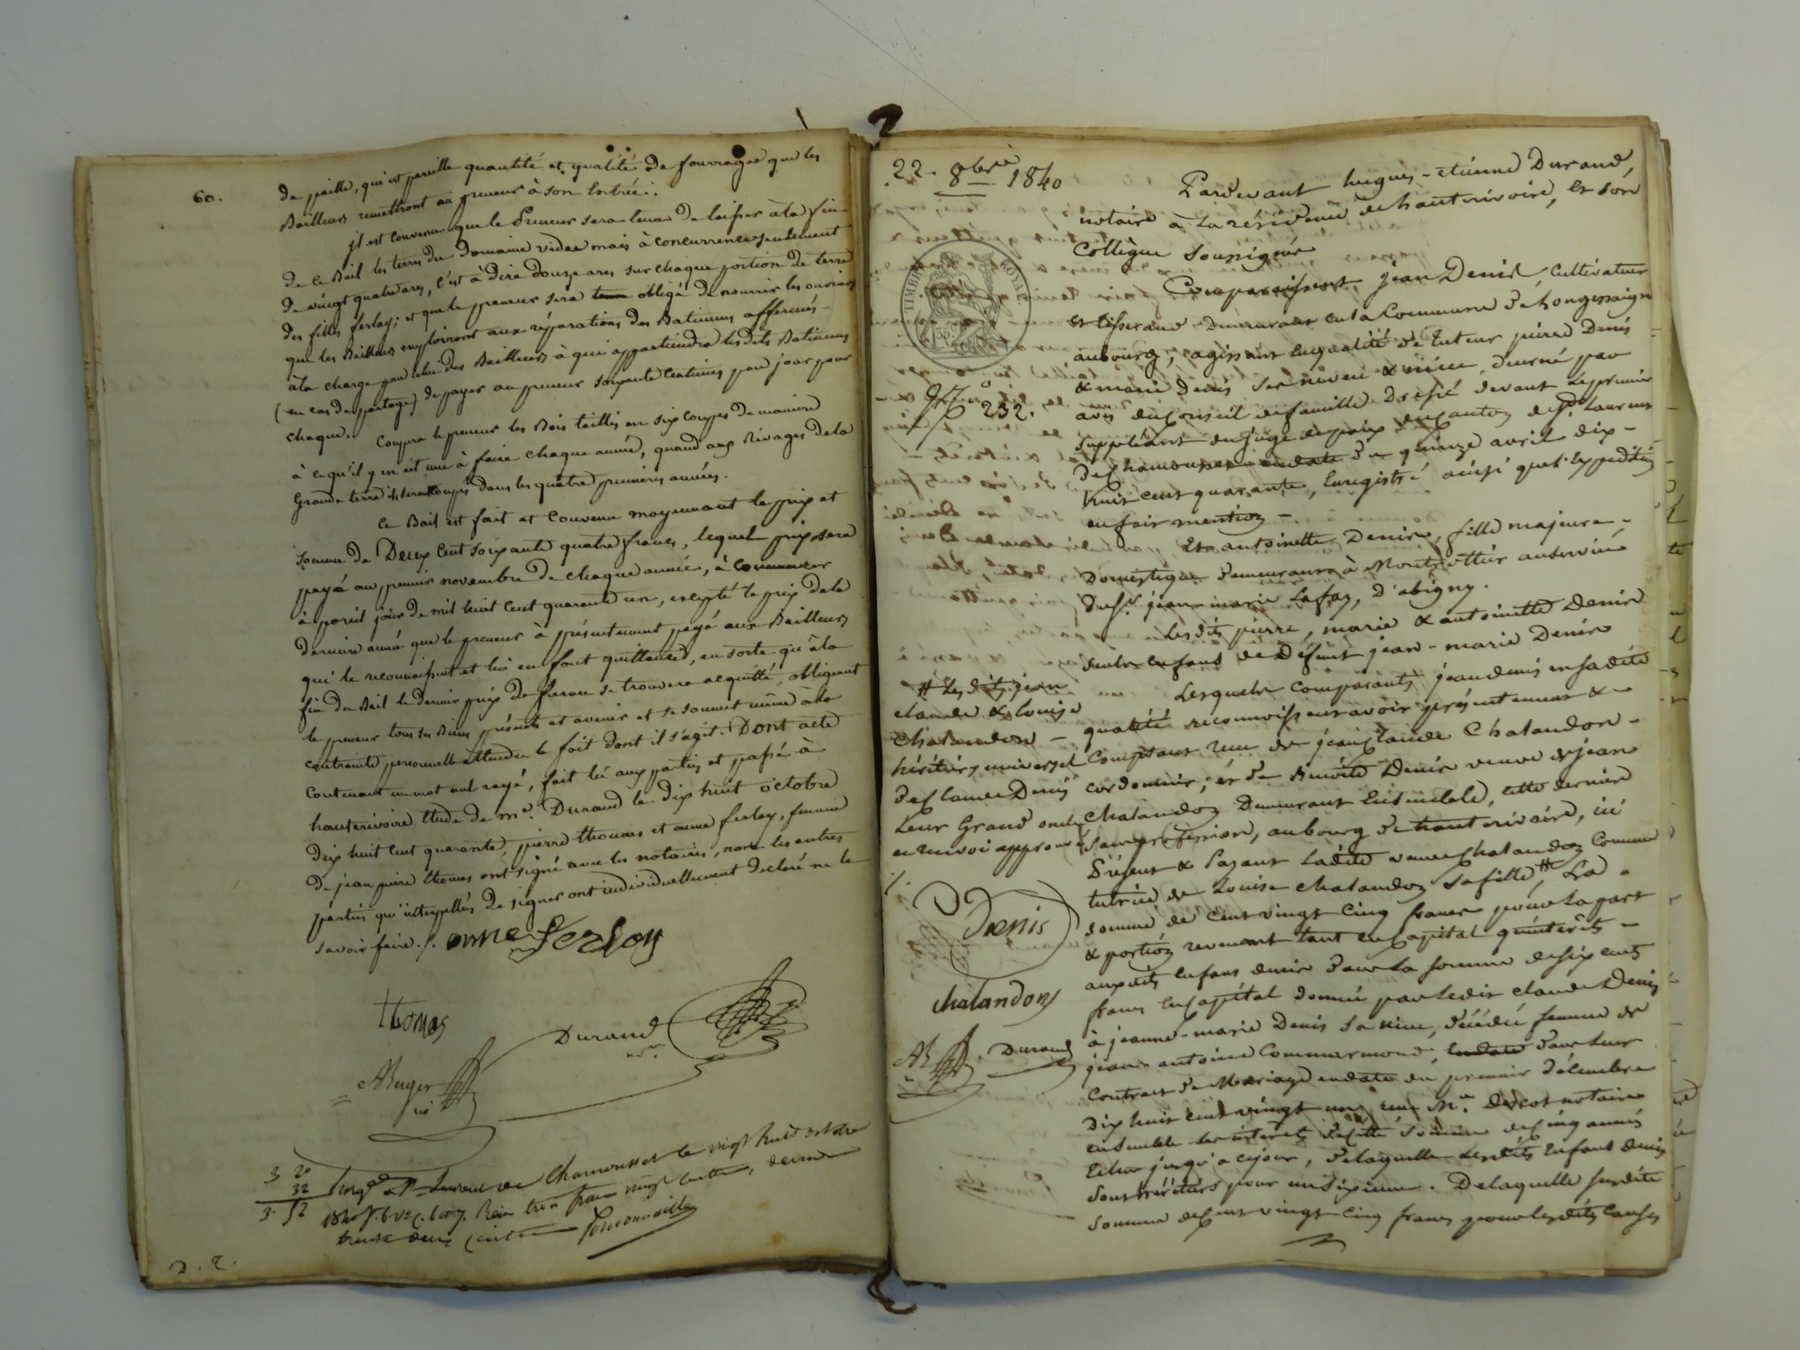 60.
de paille, qui est pareille quantité et qualité de fourrage que les
Bailleurs remettront au preneur à son Entrée.
il est convenu que le Preneur sera tenu de laisser à la fin
de ce Bail les terres du Domaine vides mais à concurrence seulement
de vingt quatre ares, c'est à dire douze ares sur chaque portion de terre
des filles ferlay; et que le preneur sera obligé de nourrir les ouvriers
que les Bailleurs emploiront aux réparations des Batimens affermés
à la charge par celui des Bailleurs à qui appartiendra lesdits Batimens
(en cas de partage) de payer au preneur soixante Centimes par jour pour
chaque.
Coupra le preneur les Bois taillis en six coupes de manière
à ce qu'il y en ait une à faire chaque année, quand aux Rivages de la
Grande terre ils seront coupés dans les quatre premières années.
Ce Bail est fait et Convenu moyennant le prix et
somme de Deux Cent soixante quatre francs, lequel prix sera
payé au premier novembre de chaque année, à commencer
à pareil jour de mil huit Cent quarante un, excepté le prix de la
dernière année que le preneur à présentement payé aux Bailleurs
qui le reconnaissent et lui en font quittance, en sorte qu'à la
fin du Bail le dernier prix de ferme se trouvera acquitté, obligeant
le preneur tous ses Biens présents et avenir et se soumet même à la
contrainte personnelle attendu le fait dont il s'agit. Dont acte
Contenant un mot nul rayé, fait lu aux parties et passé à
hauterivoire Etude de me. Durand le dix huit octobre
dix huit Cent quarante, pierre thomas et anne ferlay, femme
de jean pierre thomas ont signé avec les notaires, non les autres
parties qui interpellés de signer ont individuellement déclaré ne le
savoir faire ./. anne Ferlay
thomas
Durand
ABerger
3 20
32
3. 52
Enregé à St Laurent de Chamousset le vingt huit octobre
1840 f. 6 Vo c. 6 et 7. Reçu trois francs vingt centimes, decime
trente deux centimes
22. 8bre 1840
Pardevant hugues-etienne Durand,
notaire à la résidence de hauterivoire, et son
Collègue Soussignés
Comparaissent Jean Denis Cultivateur
et tisserand demeurant en la Commune de Longessaigne
aubourg, agissant enqualité de tuteur pierre Denis
& marie Denis ses neveu & nièce, donné par
No 232.
avis du Conseil de famille dressé devant le premier
suppléant du juge de paix du Canton de St. Laurent
de Chamousset en date du quinze avril dix-
huit cent quarante, Enregistré ainsi que l'Expédition
en fait mention -
Et antoinette Denis, fille majeure,
Domestique demeurant à Montrottier au service
du Sr jean-marie Lafay, d'abigny.
Lesdits pierre, marie & antoinette Denis
seuls enfans de Défunt jean-marie Denis
Lesquels Comparants, jean denis en sadite
qualité reconnaissent avoir présentement &
Comptant reçu de jean Claude Chalandon
cordonnier; et de Benoîte Denis veuve de jean
chalandon demeurant Ensemble, cette dernière
Sans profession, aubourg de hauterivoire, ici
Présent & Payant Ladite veuve Chalandon Comme
tutrice de Louise chalandon Sa fille #, La
somme de Cent vingt Cinq francs pour la part
& portion revenant tant en Capital qu'intérêts
auxdits enfans denis dans la somme de six cents
francs en Capital donné par ledit claude Denis
à jeanne-marie Denis sa nièce, décédée femme de
jean antoine Commarmond, dans leur
Contrat de Mariage en date du premier décembre
Dix huit cent vingt un, reçu Me. notaire
ensemble les intérêts de cette somme de cinq années
Echus jusqu'a cejour, de laquelle lesdits Enfans denis
Sont héritiers pour un sixième. De laquelle susdite
somme de Cent vingt Cinq francs pour lesdites causes
# Lesdits jean
claude & louise
chalandon -
héritiers universel
de Claude Denis
Leur Grand oncle
en renvoi approuvé
./.
Denis
chalandon
AB
Durand
TIMBRE ROYAL